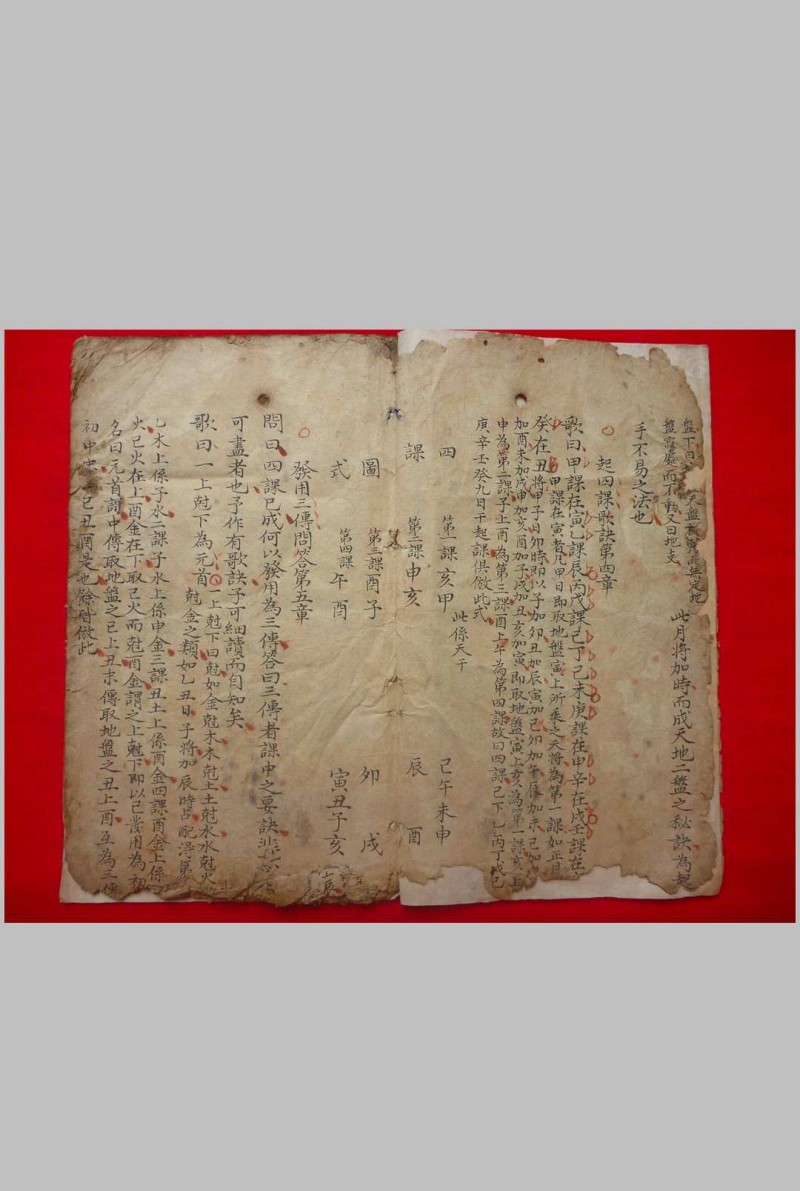 盤下曰
天盤
定地
盤寂處而不動又曰地支
此月將加時而成天地二盤之秘訣為起
手不易之法也
起四課歌訣第四章
歌曰甲課在寅乙課辰丙戊課己丁己未庚課在申辛在戌壬課在
癸在丑
甲課在寅者凡甲日即取地盤寅上所乘之天將為第一課如正月
將甲子日卯時即以子加卯丑加辰寅加巳卯加午辰加未巳加
加酉未加戌申加亥酉加子戌加丑亥加寅即取地盤寅上亥為第一課亥上
申為第二課子上酉為第三課酉上午為第四課故曰四課已下乙丙丁戊己
庚辛壬癸九日干起課俱倣此式
此係天干
四 第一課亥甲 巳午未申
課 第二課申亥 辰 酉
圖 第三課酉子 卯 戌
式 第四課午酉 寅丑子亥
發用三傳問答第五章
問曰四課已成何以發用為三傳答曰三傳者課中之要訣非
可盡者也予作有歌訣子可細讀而自知矣
歌曰一上尅下為元首
一上尅下曰尅如金尅木木尅土土尅水水尅火
尅金之類如乙丑日子將加辰時占
第
乙木上係子水二課子水上係申金三課丑土上係酉金四課酉金上係
火巳火在上酉金在下取巳火而尅酉金謂之上尅下即以巳發用為初
名曰元首課中傳取地盤之巳上丑末傳取地盤之丑上酉互為三傳
初中末
巳丑酉是也餘皆倣此